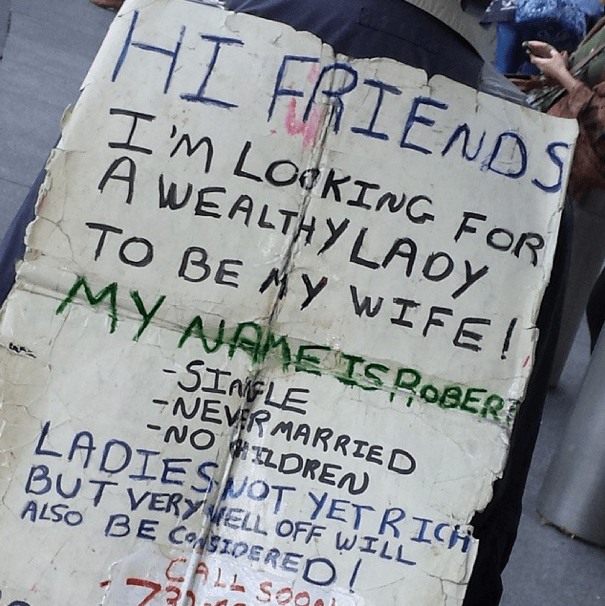 HI FRIENDS
I'M LOOKING FOR
A WEALTHY LADY
TO BE MY WIFE!
MY NAME IS ROBER
-SINGLE
-NEVER MARRIED
-NO CHILDREN
LADIES NOT YET RICH
BUT VERY WELL OFF WILL
ALSO BE CONSIDERED!
CALL SOON